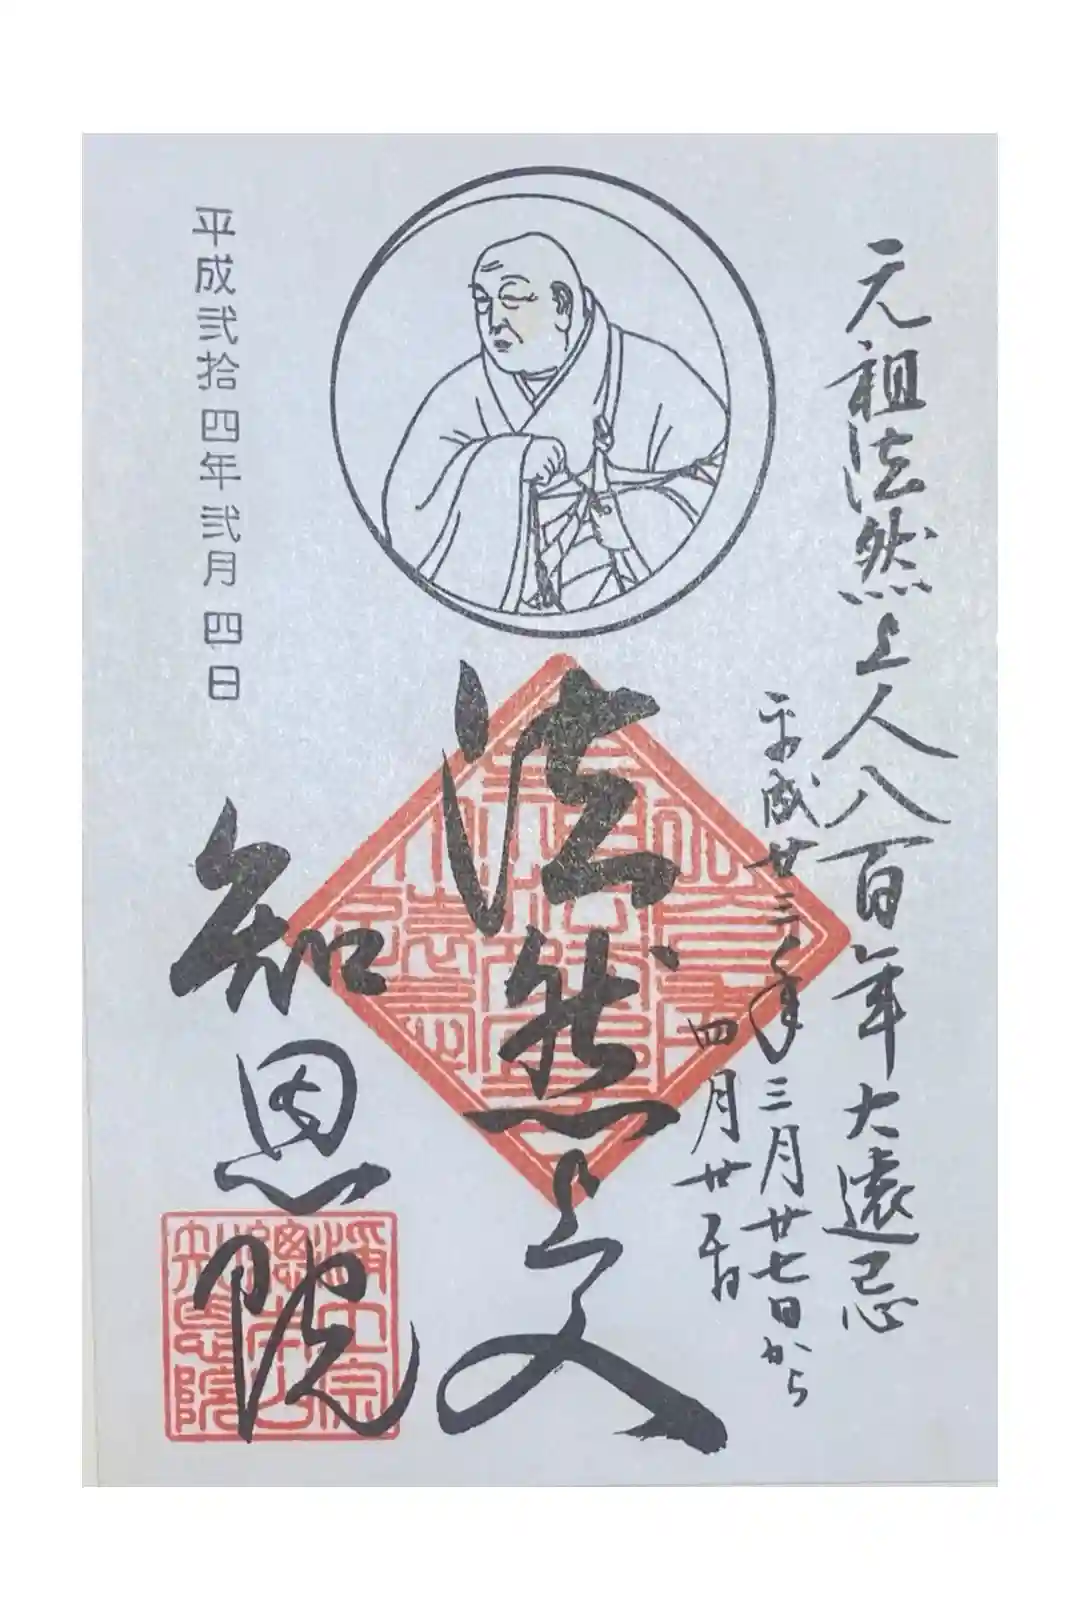 元祖法然上人八百年大遠忌
平成廿三年三月廿七日から
四月廿五日
法然上人
知恩院
平成弐拾四年弐月四日
浄土宗
總本山
知恩院